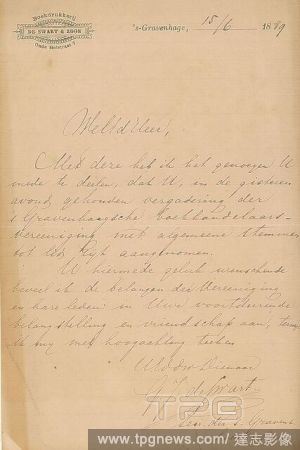 Boekdrukkerij
DE SWART & ZOON
Oude Molstraat 7
's-Gravenhage, 15/6 1889
WelEd Heer,
Met deze heb ik het genoegen U
mede te deelen, dat U, in de gisteren
avond gehouden vergadering der
's Gravenhaagsche boekhandelaars-
vereeniging met algemeene stemmen
tot lid zijt aangenomen.
U hiermede geluk wenschende
beveel ik de belangen der Vereeniging
en hare leden in Uwe voortdurende
belangstelling en vriendschap aan, terwijl
ik mij met hoogachting teeken
UEd dw Dienaar
de Swart
Secr. der 's Gravenh
TPG
www.tpgnews.com / 達志影像